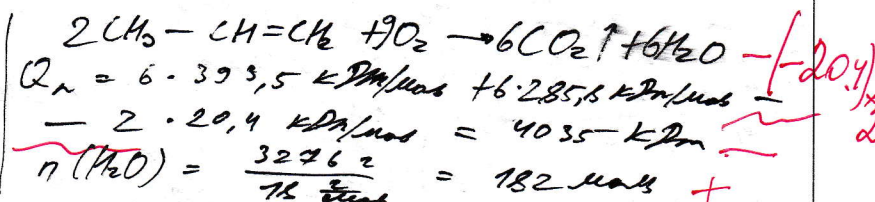 2CH₃ – CH = CH₂ + 9O₂ → 6CO₂↑ + 6H₂O – (-20,4)×2
Qₙ = 6 · 393,5 кДж/моль + 6·285,8 кДж/моль –
– 2 · 20,4 кДж/моль = 4035 кДж
n(H₂O) = 3276 г / 18 г/моль = 182 моль +